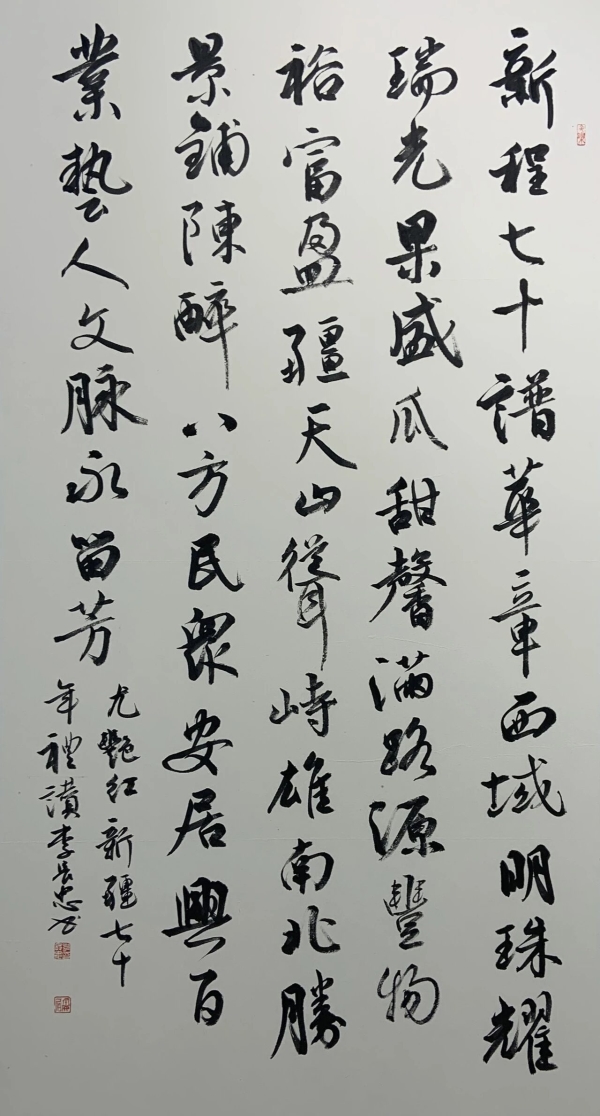 新程七十譜華章西域明珠耀
瑞光果盛瓜甜馨滿路源豐物
裕富盈疆天山聳峙雄南北勝
景鋪陳醉八方民眾安居興百
業藝人文脉永留芳
尤艷红新疆七十
年禮讚李長忠書